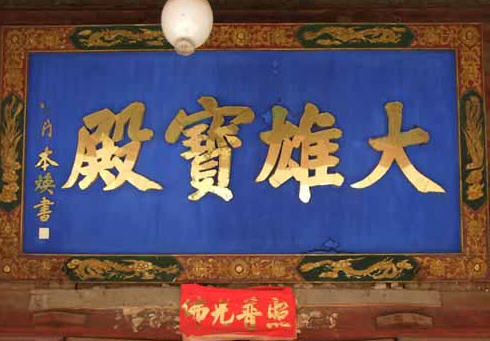 大雄寶殿
本煥書
佛光普照